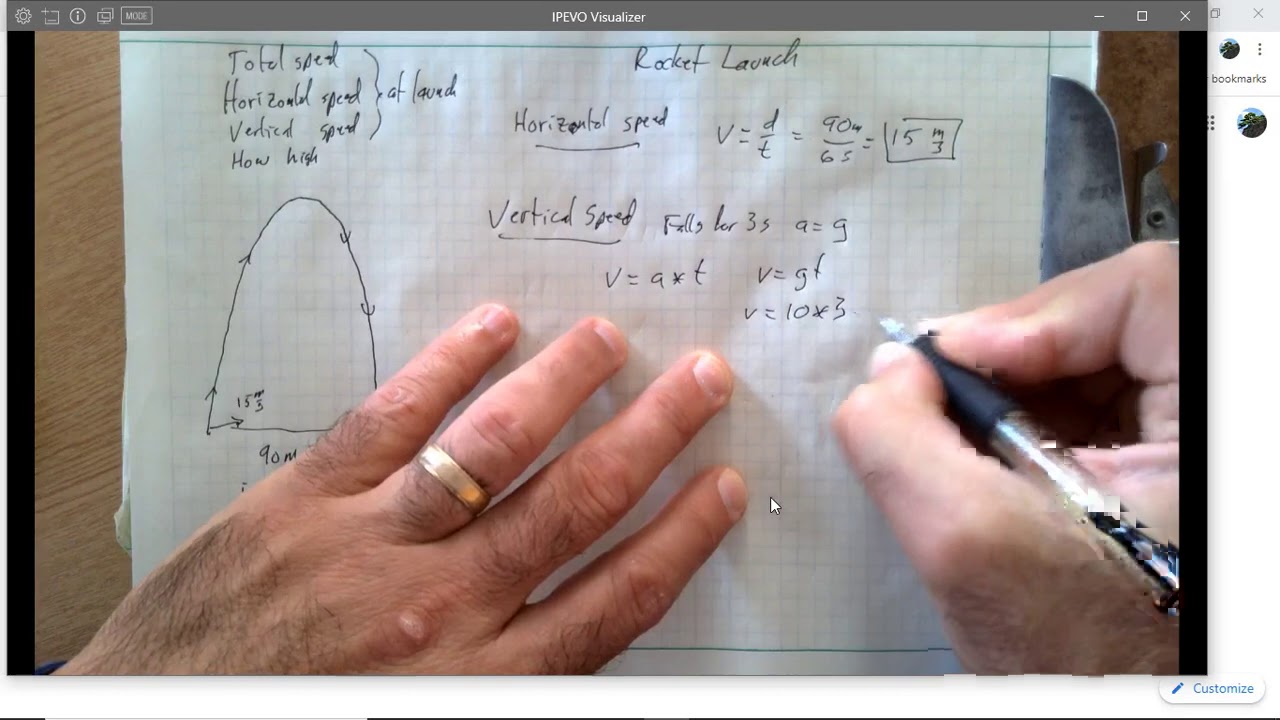 IPEVO Visualizer
MODE
bookmarks
Total speed
Horizontal speed
Vertical speed
at launch
How high
Rocket Launch
Horizontal speed V = d/t = 90m/6s = 15 m/s
Vertical Speed Falls for 3s a = g
V = a*t v = gt
v = 10*3
15 m/s
90m
Customize